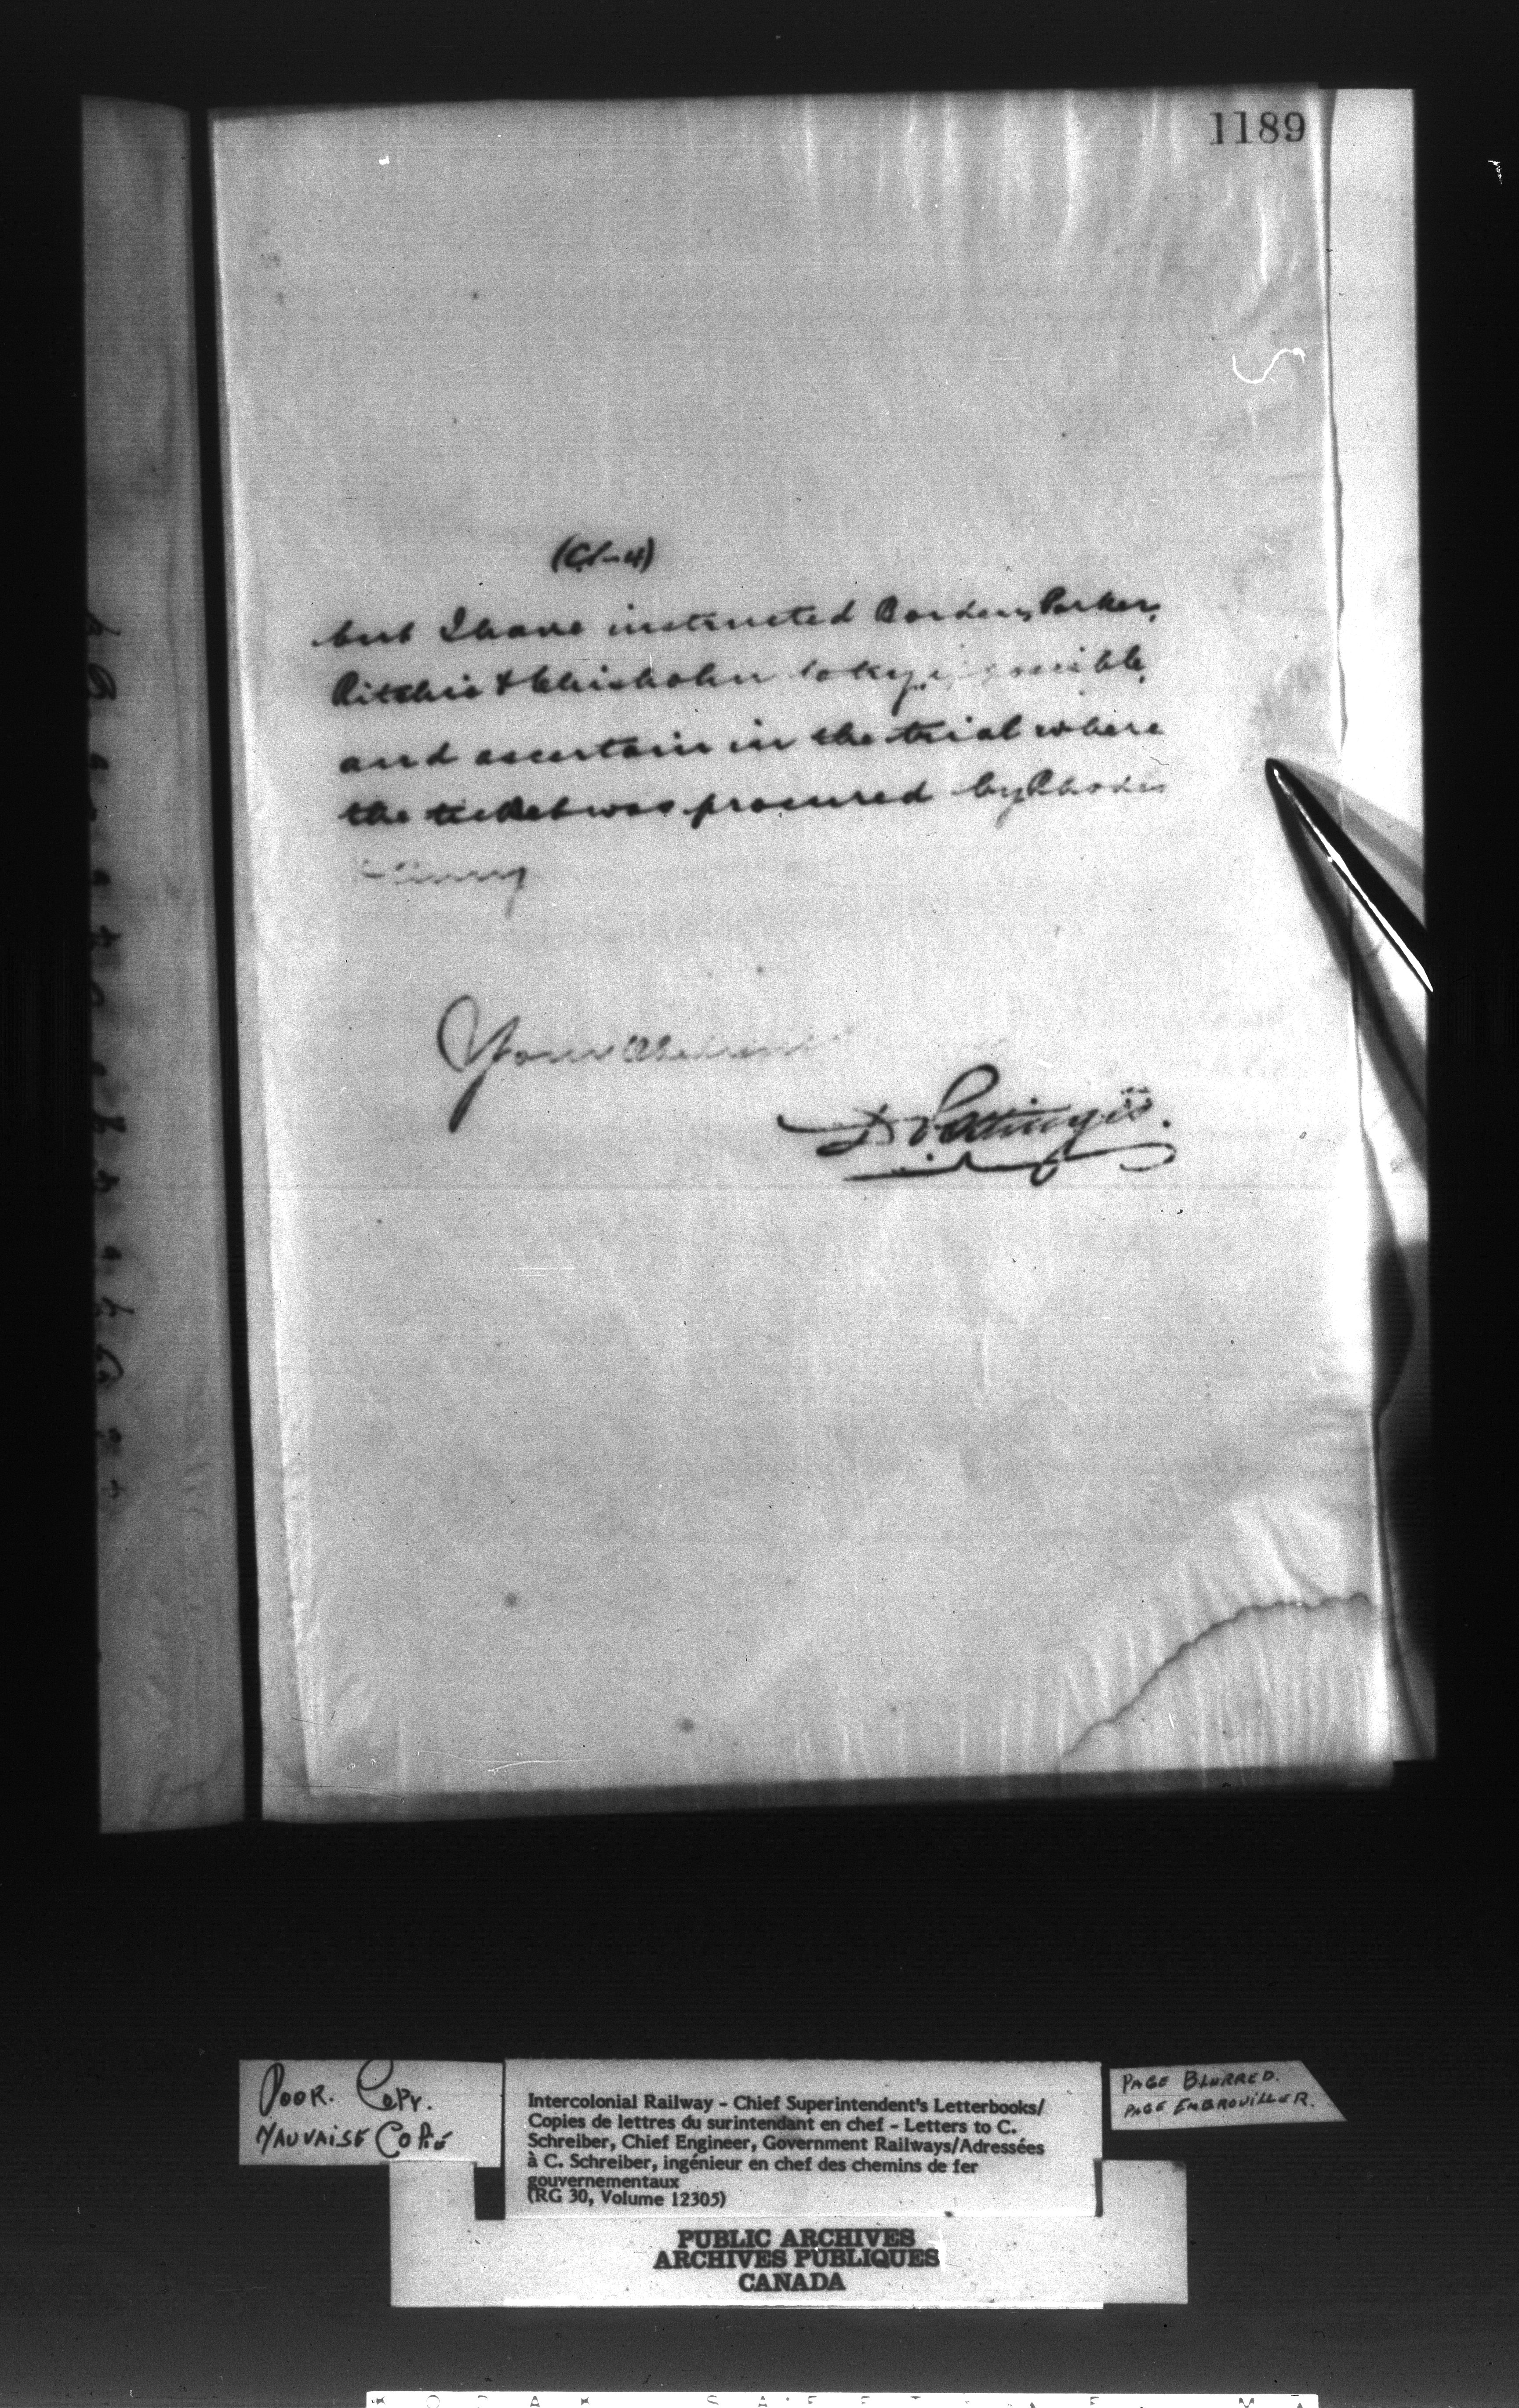 1189
but I have instructed Borden, Parker,
Ritchie & Chisholm to try if possible,
and ascertain in the trial where
the ticket was procured by Rhodes
Yours
D Pottinger.
POOR. COPY.
MAUVAISE COPIE
Intercolonial Railway - Chief Superintendent's Letterbooks/
Copies de lettres du surintendant en chef - Letters to C.
Schreiber, Chief Engineer, Government Railways/Adressées
à C. Schreiber, ingénieur en chef des chemins de fer
gouvernementaux
(RG 30, Volume 12305)
PAGE BLURRED.
PAGE EMBROUILLER.
PUBLIC ARCHIVES
ARCHIVES PUBLIQUES
CANADA